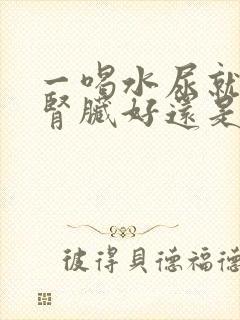 一喝水尿就
腎臟好還是
彼得貝德福德